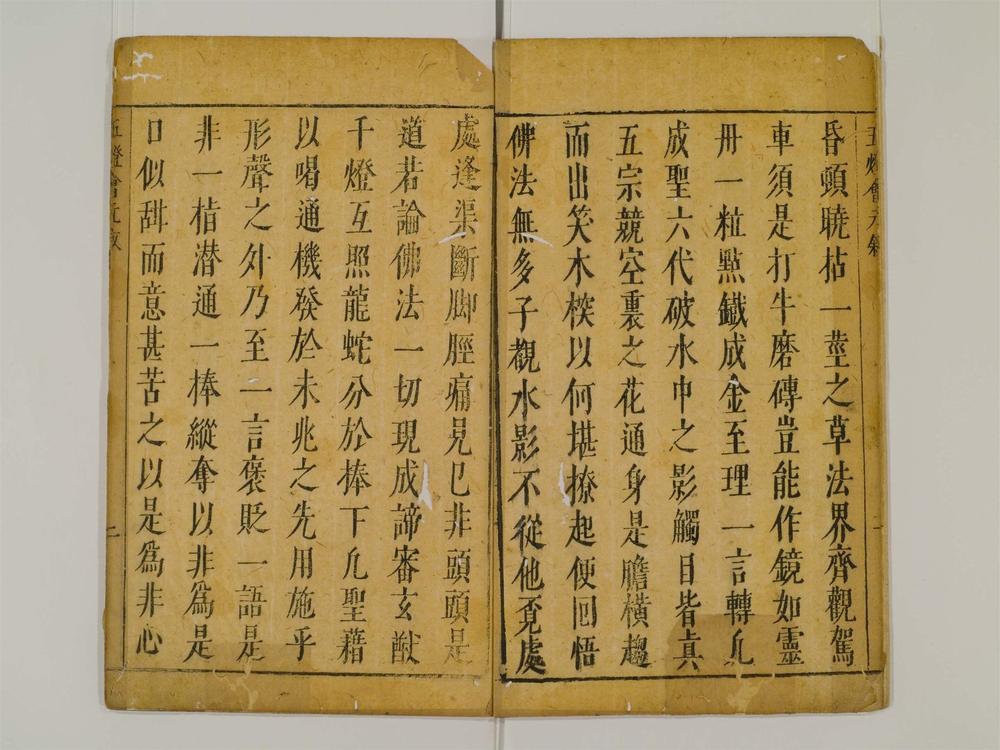 五燈會元敘
昏頓曉拈一莖之草法界齊觀駕
車須是打牛磨磚豈能作鏡如靈
丹一粒點鐵成金至理一言轉凡
成聖六代破水中之影觸目皆眞
五宗競空裏之花通身是膽橫趨
而出笑木樧以何堪撩起便回悟
佛法無多子觀水影不從他覓處
處逢渠斷脚脛痛見已非頭頭是
道若論佛法一切現成諦審玄猷
千燈互照龍蛇分於棒下凡聖藉
以喝通機發於未兆之先用施乎
形聲之外乃至一言褒貶一語是
非一指潜通一棒縱奪以非爲是
口似甜而意甚苦之以是爲非心
五燈會元敘
二